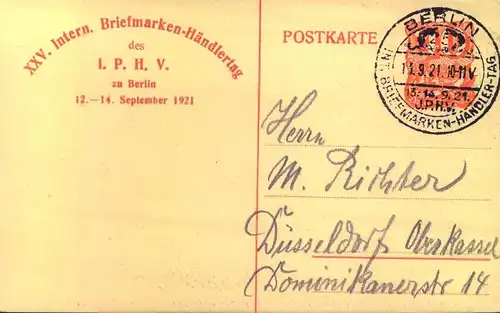 XXV. Intern. Briefmarken-Händlertag
des
I. P. H. V.
zu Berlin
12.—14. September 1921
POSTKARTE
BERLIN
13.9.21. 10-11V.
13.-14.9.21.
J.P.H.V.
INT. BRIEFMARKEN-HÄNDLER-TAG
Herrn
M. Richter
Düsseldorf Oberkassel
Dominikanerstr 14